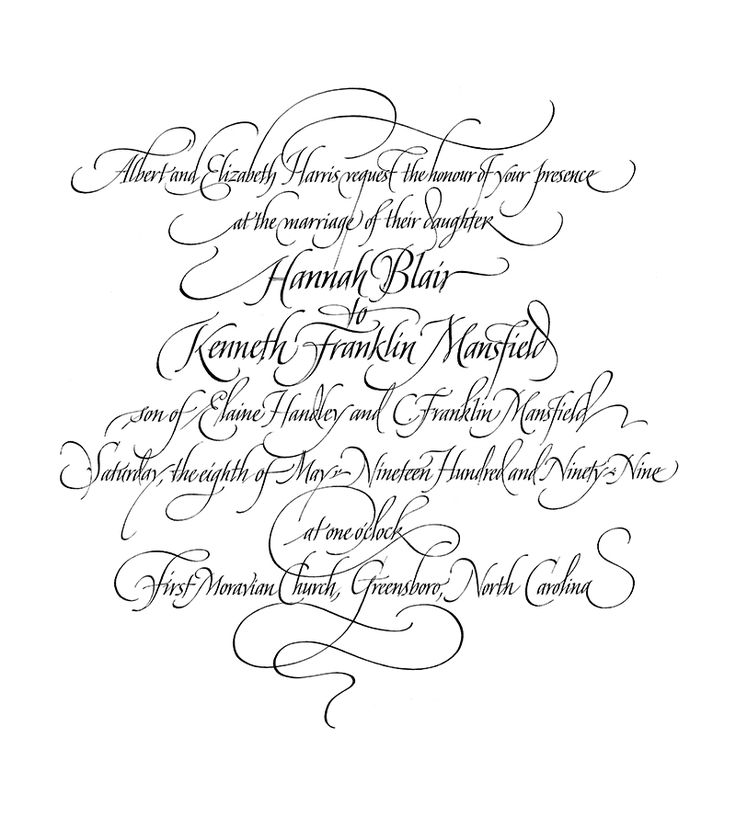 Albert and Elizabeth Harris request the honour of your presence
at the marriage of their daughter
Hannah Blair
to
Kenneth Franklin Mansfield
son of Elaine Handley and C Franklin Mansfield
Saturday, the eighth of May - Nineteen Hundred and Ninety-Nine
at one o'clock
First Moravian Church, Greensboro, North Carolina